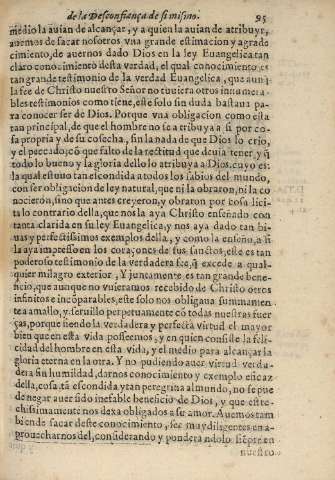 de la Desconfiança de si mismo. 95
medio la auian de alcançar, y a quien la auian de atribuyr,
auemos de sacar nosotros vna grande estimacion y agrade
cimiento, de auernos dado Dios en la ley Euangelica tan
claro conocimiento desta verdad, el qual conocimiento es
tan grande testimonio de la verdad Euangelica, que aunq̃
la fee de Christo nuestro Señor no tuuiera otros innumera-
bles testimonios como tiene, este solo sin duda bastaua pa
ra conocer ser de Dios. Porque vna obligacion como esta
tan principal, de que el hombre no se atribuya a si por co-
sa propria y de su cosecha, sin la nada de que Dios lo crio,
y el peccado, q̃ fue falto de la rectitud que deuia tener, y q̃
todo lo bueno y la gloria dello lo atribuya a Dios, cuyo es:
la qual estuuo tan escondida a todos los sabios del mundo,
con ser obligacion de ley natural, que ni la obraron, ni la co
nocieron, sino que antes creyeron, y obraron por cosa lici-
ta lo contrario della, que nos la aya Christo enseñado con
tanta claridad en su ley Euangelica, y nos aya dado tan bi-
uas y perfectissimos exemplos della, y como la enseña, assi
la aya impresso en los coraçones de sus sanctos, este es tan
poderoso testimonio de la verdadera fee, q̃ excede a qual-
quier milagro exterior, Y juntamente es tan grande bene-
ficio, que aunque no vuieramos recebido de Christo otros
infinitos e incõparables, este solo nos obligaua summamen
te a amallo, y seruillo perpetuamente cõ todas nuestras fuer
ças, porque siendo la verdadera y perfecta virtud el mayor
bien que en esta vida posseemos, y en quien consiste la feli-
cidad del hombre en esta vida, y el medio para alcançar la
gloria eterna en la otra. Y no pudiendo auer virtud verda-
dera sin humildad, darnos conocimiento y exemplo eficaz
della, cosa tã escondida y tan peregrina al mundo, no se pue
de negar auer sido inefable beneficio de Dios, y que este-
chissimamente nos dexa obligados a su amor. Auemos tam
bien de sacar deste conocimiento, ser muy diligentes en a-
prouecharnos del, considerando y ponderãdolo siẽpre en
nuestro